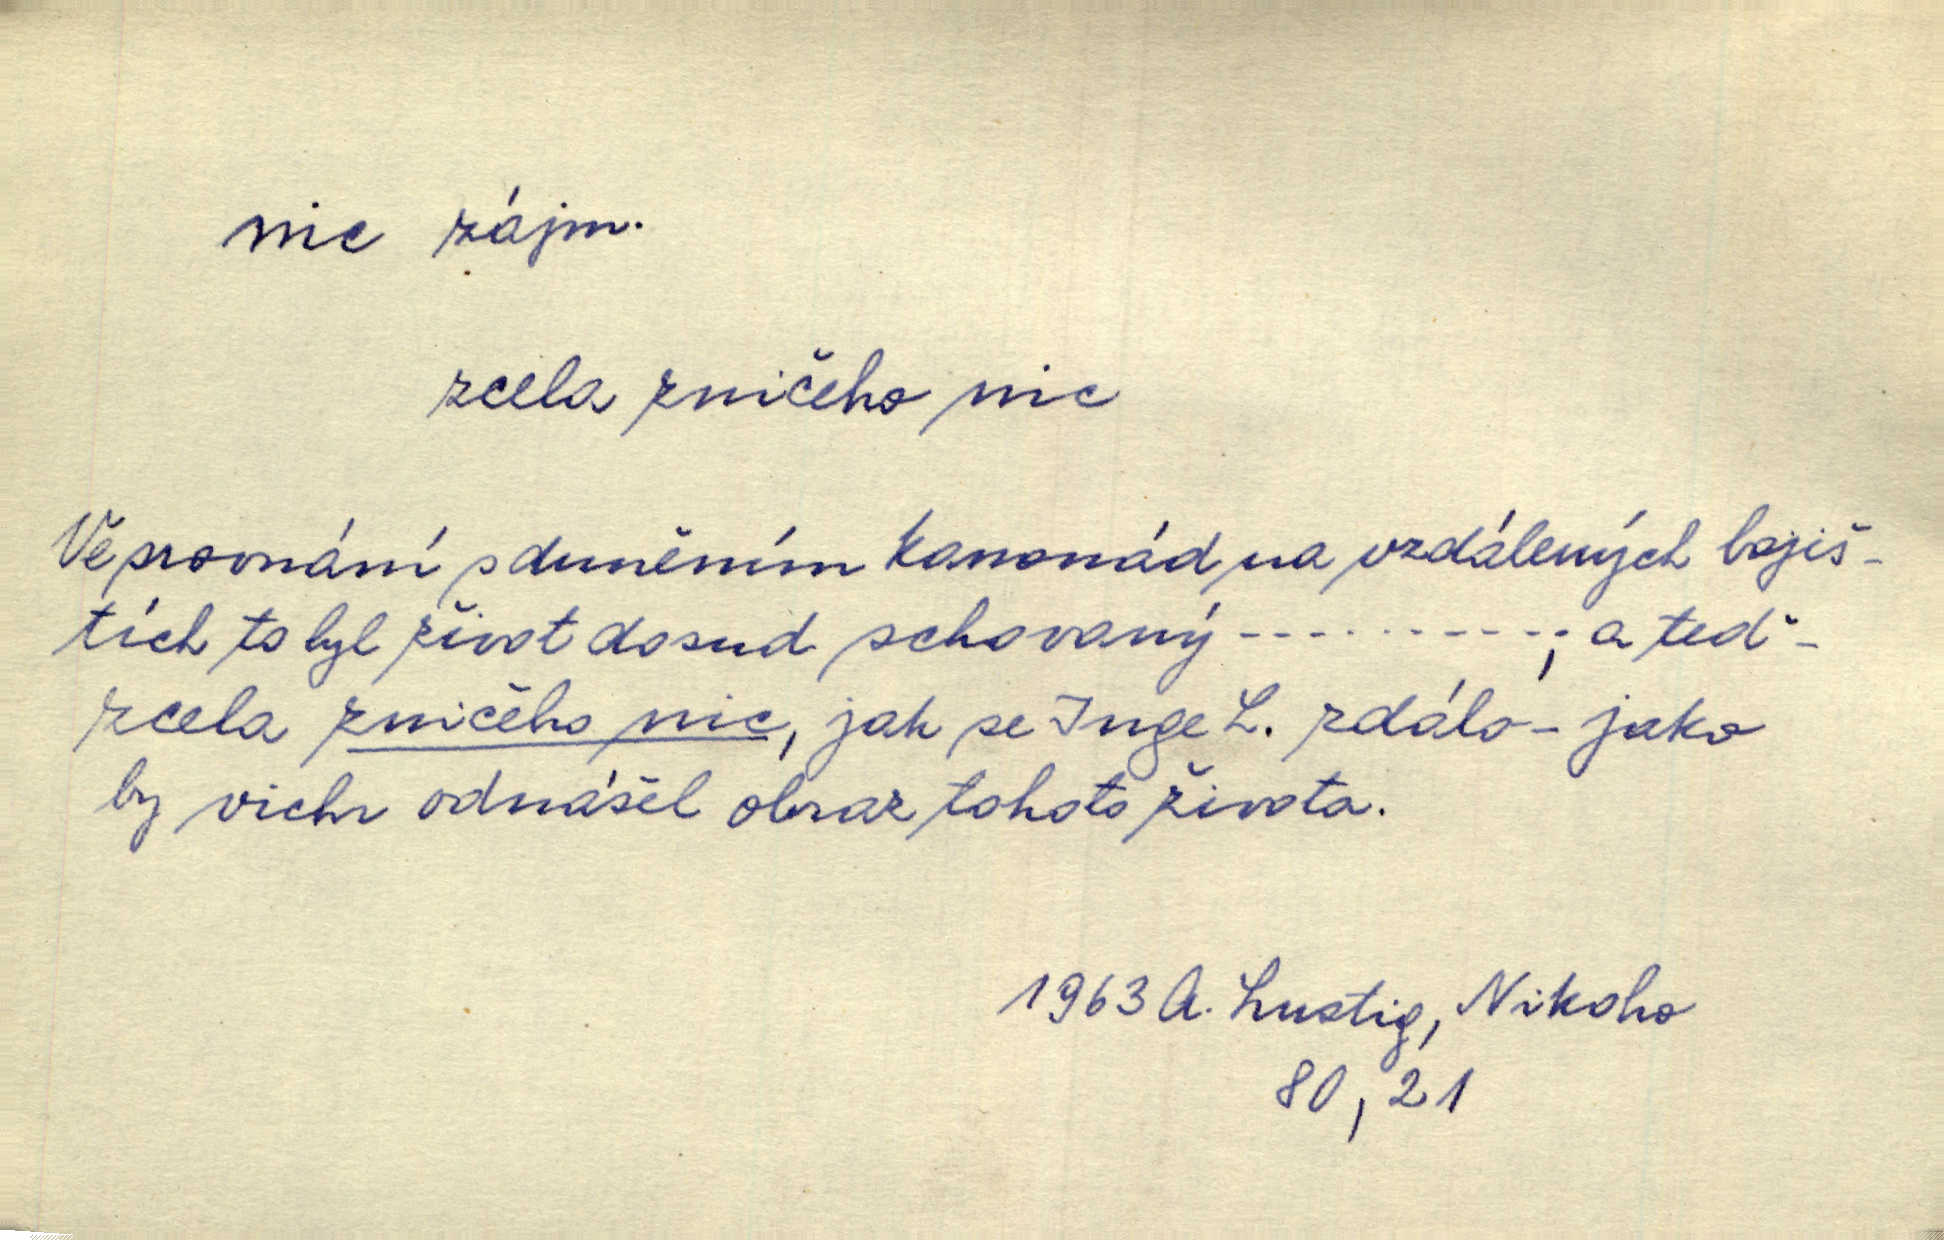 nic zájm.
zcela zničeho nic
Ve srovnání s duněním kanonád na vzdálených bojiš-
tích to byl život dosud schovaný - - - - - - - - - - ; a teď -
zcela zničeho nic, jak se Inge L. zdálo - jako
by vichr odnášel obraz tohoto života.
1963 A. Lustig, Nikoho
80, 21